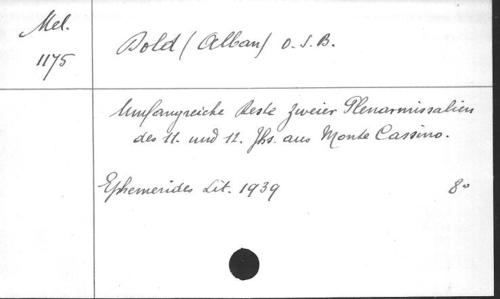 Mel.
1175
Dold (Alban) O.S.B.
Umfangreiche Reste zweier Plenarmissalien
des 11. und 12. Jhs. aus Monte Cassino.
Ephemerides Lit. 1939
8°